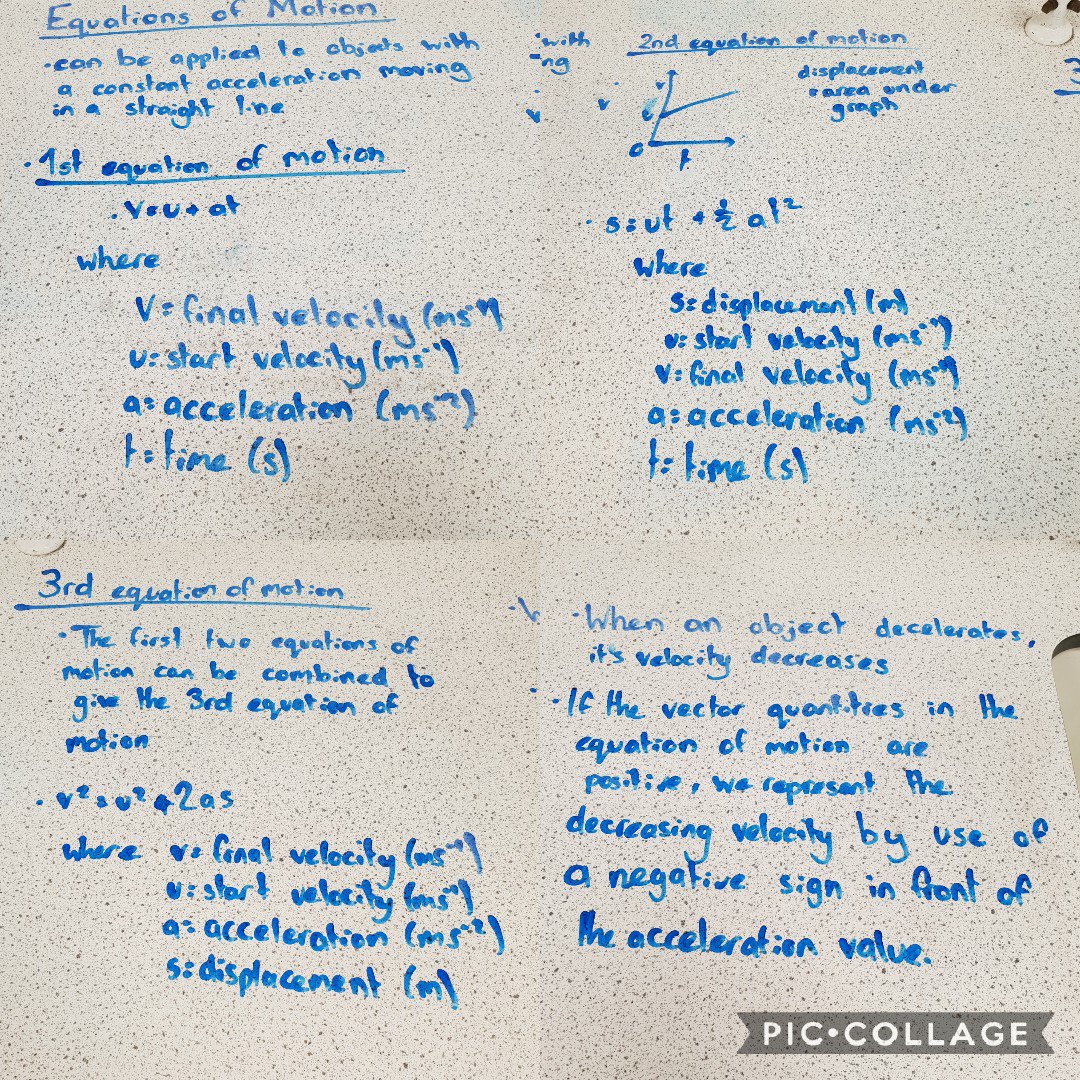 Equations of Motion
·can be applied to objects with
a constant acceleration moving
in a straight line
·1st equation of motion
·V=u+at
where
V=final velocity (ms⁻¹)
u=start velocity (ms⁻¹)
a=acceleration (ms⁻²)
t=time (s)
with
ng
v
2nd equation of motion
displacement
=area under
graph
v
v
u
0
t
·s=ut + ½ at²
where
s=displacement (m)
u=start velocity (ms⁻¹)
v=final velocity (ms⁻¹)
a=acceleration (ms⁻²)
t=time (s)
3
3rd equation of motion
·The first two equations of
motion can be combined to
give the 3rd equation of
motion
·v²=u²+2as
where v=final velocity (ms⁻¹)
u=start velocity (ms⁻¹)
a=acceleration (ms⁻²)
s=displacement (m)
·When an object decelerates,
it's velocity decreases
·If the vector quantities in the
equation of motion are
positive, we represent the
decreasing velocity by use of
a negative sign in front of
the acceleration value.
PIC•COLLAGE